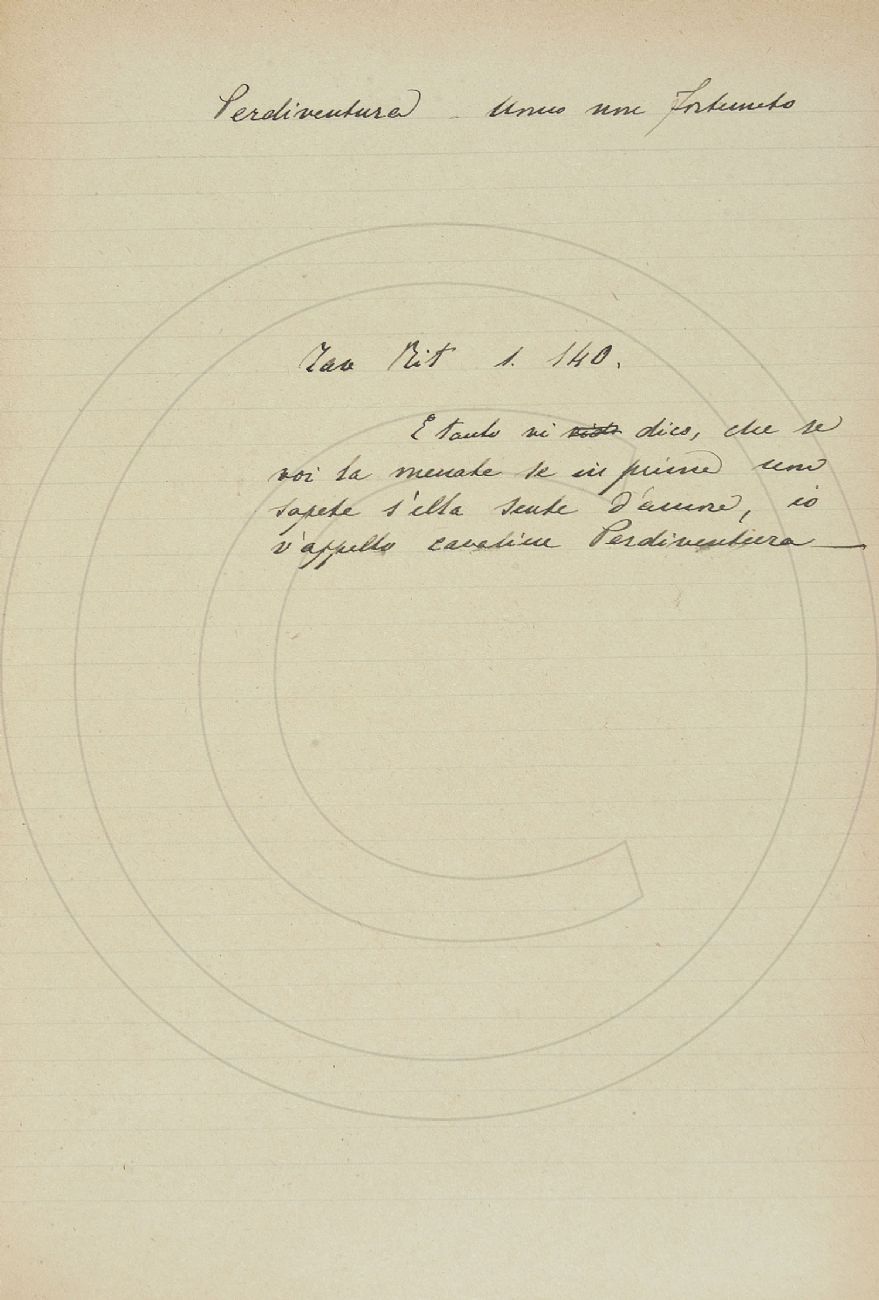 Perdiventura - Uomo non fortunato
Tav Rit 1. 140.
E tanto vi dico, che se
voi la menate se in prima non
sapete s'ella sente d'amore, io
v'appello cavaliere Perdiventura —